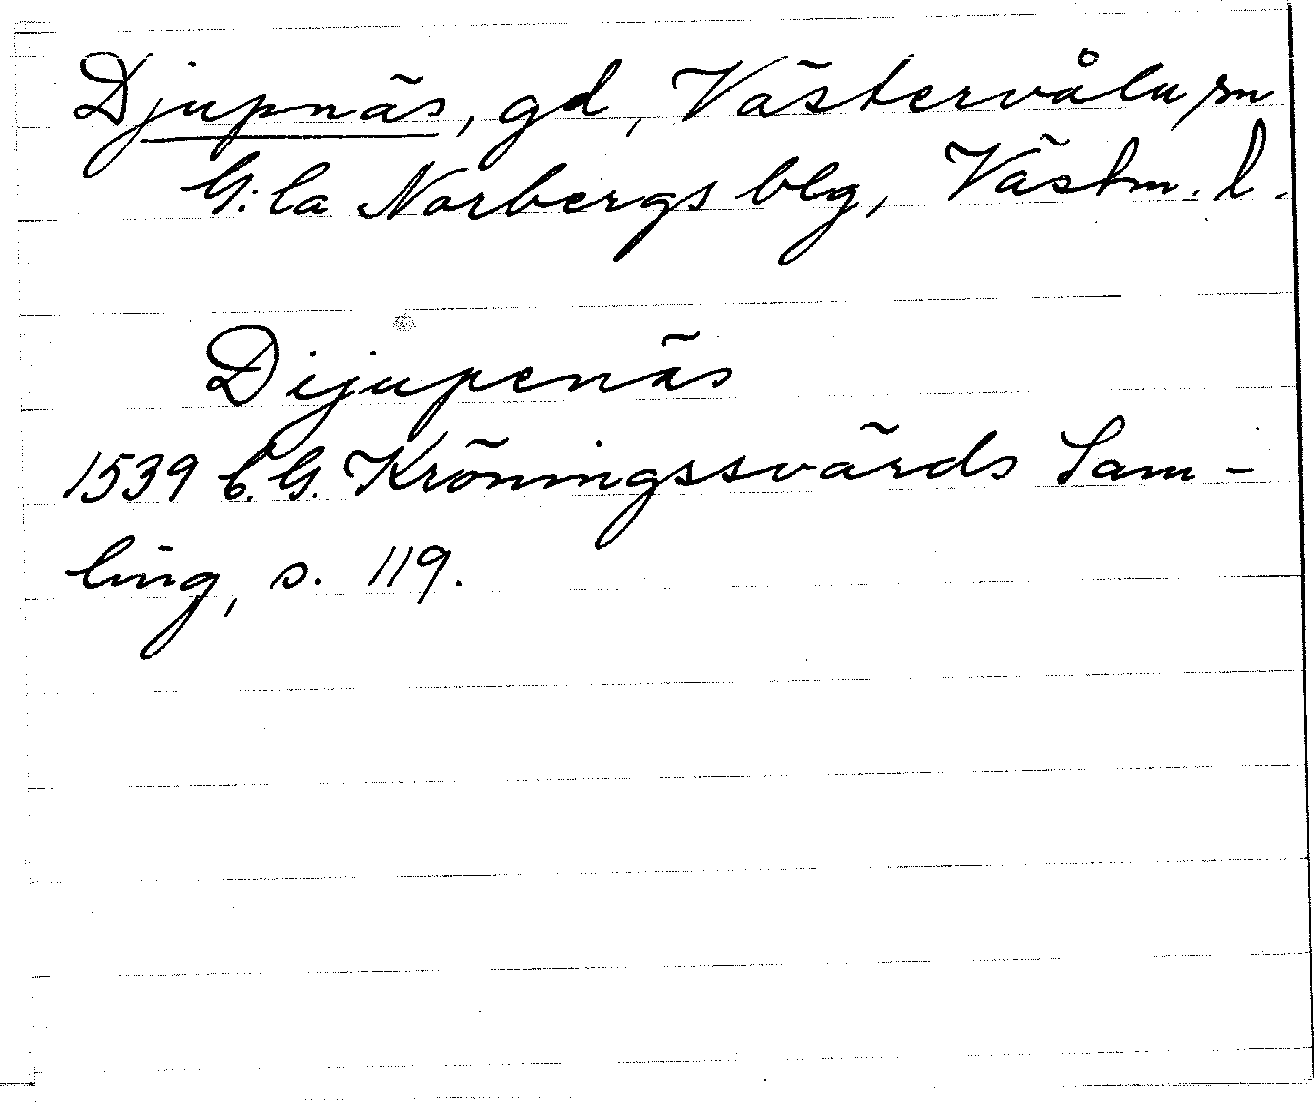 Djupnäs, gd, Västervåla sn
G:la Norbergs blg, Västm. l.
Dijupenäs
1539 C.G. Kröningssvärds Sam-
ling, s. 119.